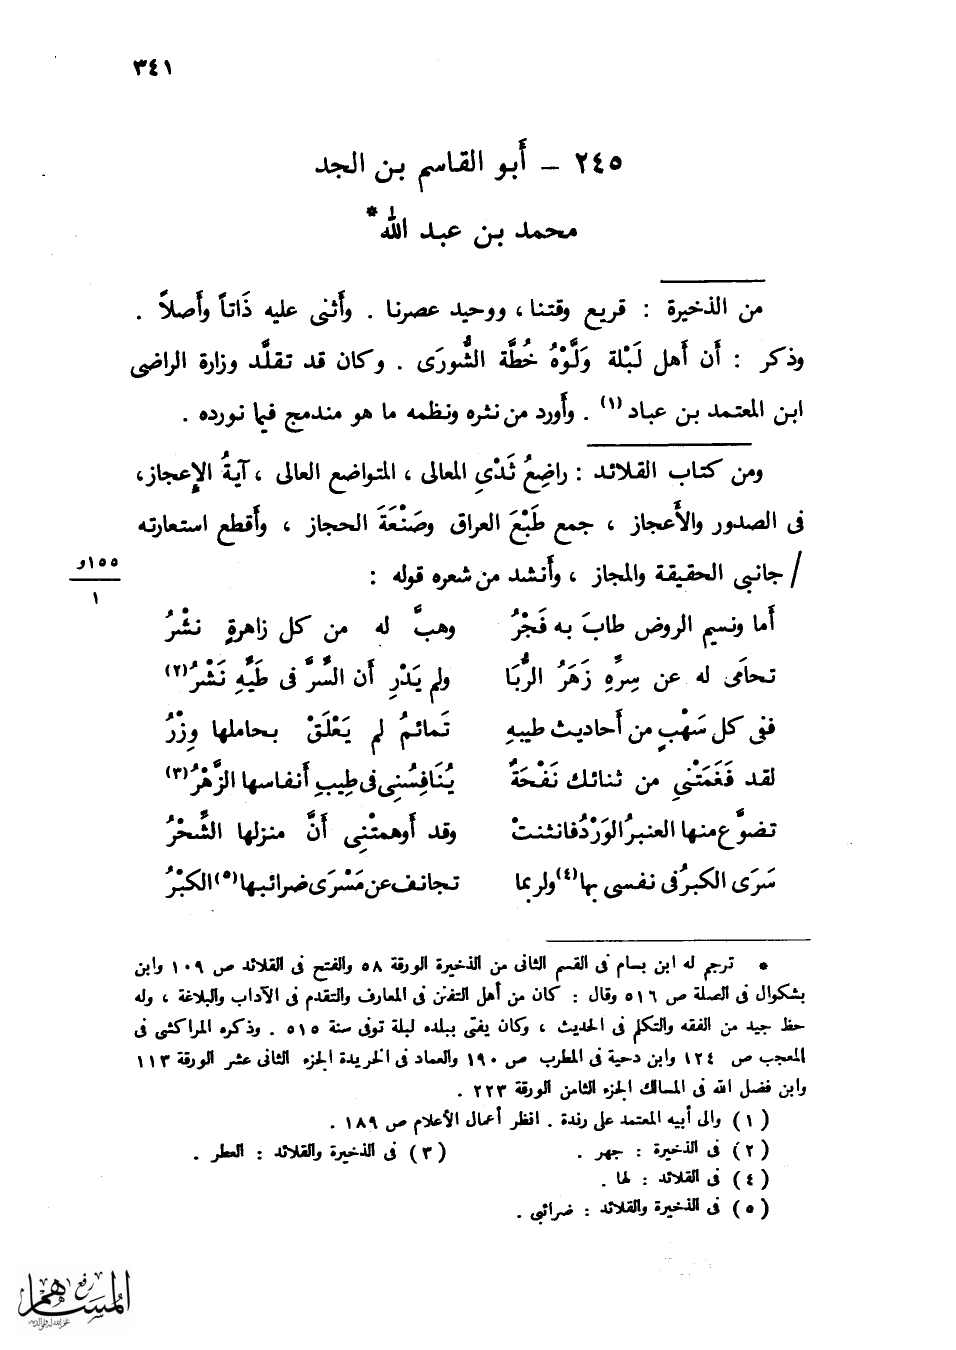 ٣٤١
٢٤٥ – أَبو القاسم بن الجد
محمد بن عبد الله*
من الذخيرة : قريع وقتنا ، ووحيد عصرنا . وأَثنى عليه ذَاتاً وأَصلاً .
وذكر : أَن أَهل لَبْلة وَلَّوْهُ خُطَّة الشُّورَى . وكان قد تقلَّد وزارة الراضى
ابن المعتمد بن عباد (١) . وأَورد من نثره ونظمه ما هو مندمج فيما نورده .
ومن كتاب القلائد : راضِعُ ثَدْىِ المعالى ، المتواضع العالى ، آيةُ الإِعجاز ،
فى الصدور والأَعجاز ، جمع طَبْعَ العراق وصَنْعَةَ الحجاز ، وأَقطع استعارته
/ جانبى الحقيقة والمجاز ، وأَنشد من شعره قوله :
١٥٥و
١
أَما ونسيم الروض طابَ به فَجْرُ وهبَّ له من كل زاهرةٍ نشْرُ
تحامَى له عن سِرِّهِ زَهَرُ الرُّبَا ولم يَدْرِ أَن السَّرَّ فى طَيَّهِ نَشْرُ (٢)
ففى كل سَهْبٍ من أَحاديث طيبهِ تَمائمُ لم يَعْلَقْ بحاملها وِزْرُ
لقد فَغَمَتْنِى من ثنائك نَفْحَةٌ يُنَافِسُنِى فى طِيبِ أَنفاسها الزَّهْرُ (٣)
تضوَّع منها العنبرُ الوَرْدُ فانثنتْ وقد أَوهمتْنِى أَنَّ منزلها الشَّحْرُ
سَرَى الكبرُ فى نفسى بها (٤) ولربما تجانف عن مَسْرَى ضرائبها (٥) الكبْرُ
* ترجم له ابن بسام فى القسم الثانى من الذخيرة الورقة ٥٨ والفتح فى القلائد ص ١٠٩ وابن
بشكوال فى الصلة ص ٥١٦ وقال : كان من أهل التفنن فى المعارف والتقدم فى الآداب والبلاغة ، وله
حظ جيد من الفقه والتكلم فى الحديث ، وكان يفتى ببلده لبلة توفى سنة ٥١٥ . وذكره المراكشى فى
المعجب ص ١٢٤ وابن دحية فى المطرب ص ١٩٠ والعماد فى الخريدة الجزء الثانى عشر الورقة ١١٣
وابن فضل الله فى المسالك الجزء الثامن الورقة ٢٢٣ .
(١) والى أبيه المعتمد على رندة . انظر أعمال الأعلام ص ١٨٩ .
(٢) فى الذخيرة : جهر . (٣) فى الذخيرة والقلائد : العطر .
(٤) فى القلائد : لها .
(٥) فى الذخيرة والقلائد : ضرائبى .
رفع
المساهم